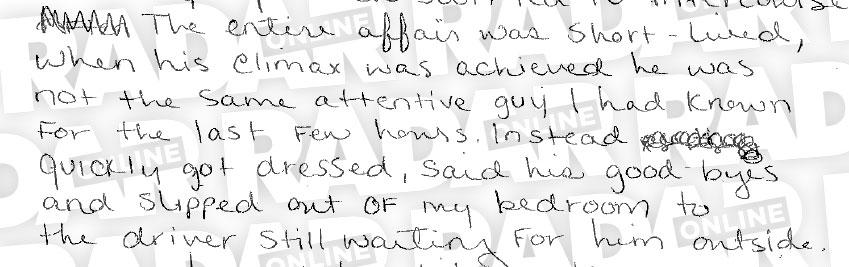 The entire affair was short-lived,
when his climax was achieved he was
not the same attentive guy I had known
For the last Few hours. Instead
Quickly got dressed, said his good-byes
and slipped out OF my bedroom to
the driver still waiting For him outside.
RADAR ONLINE